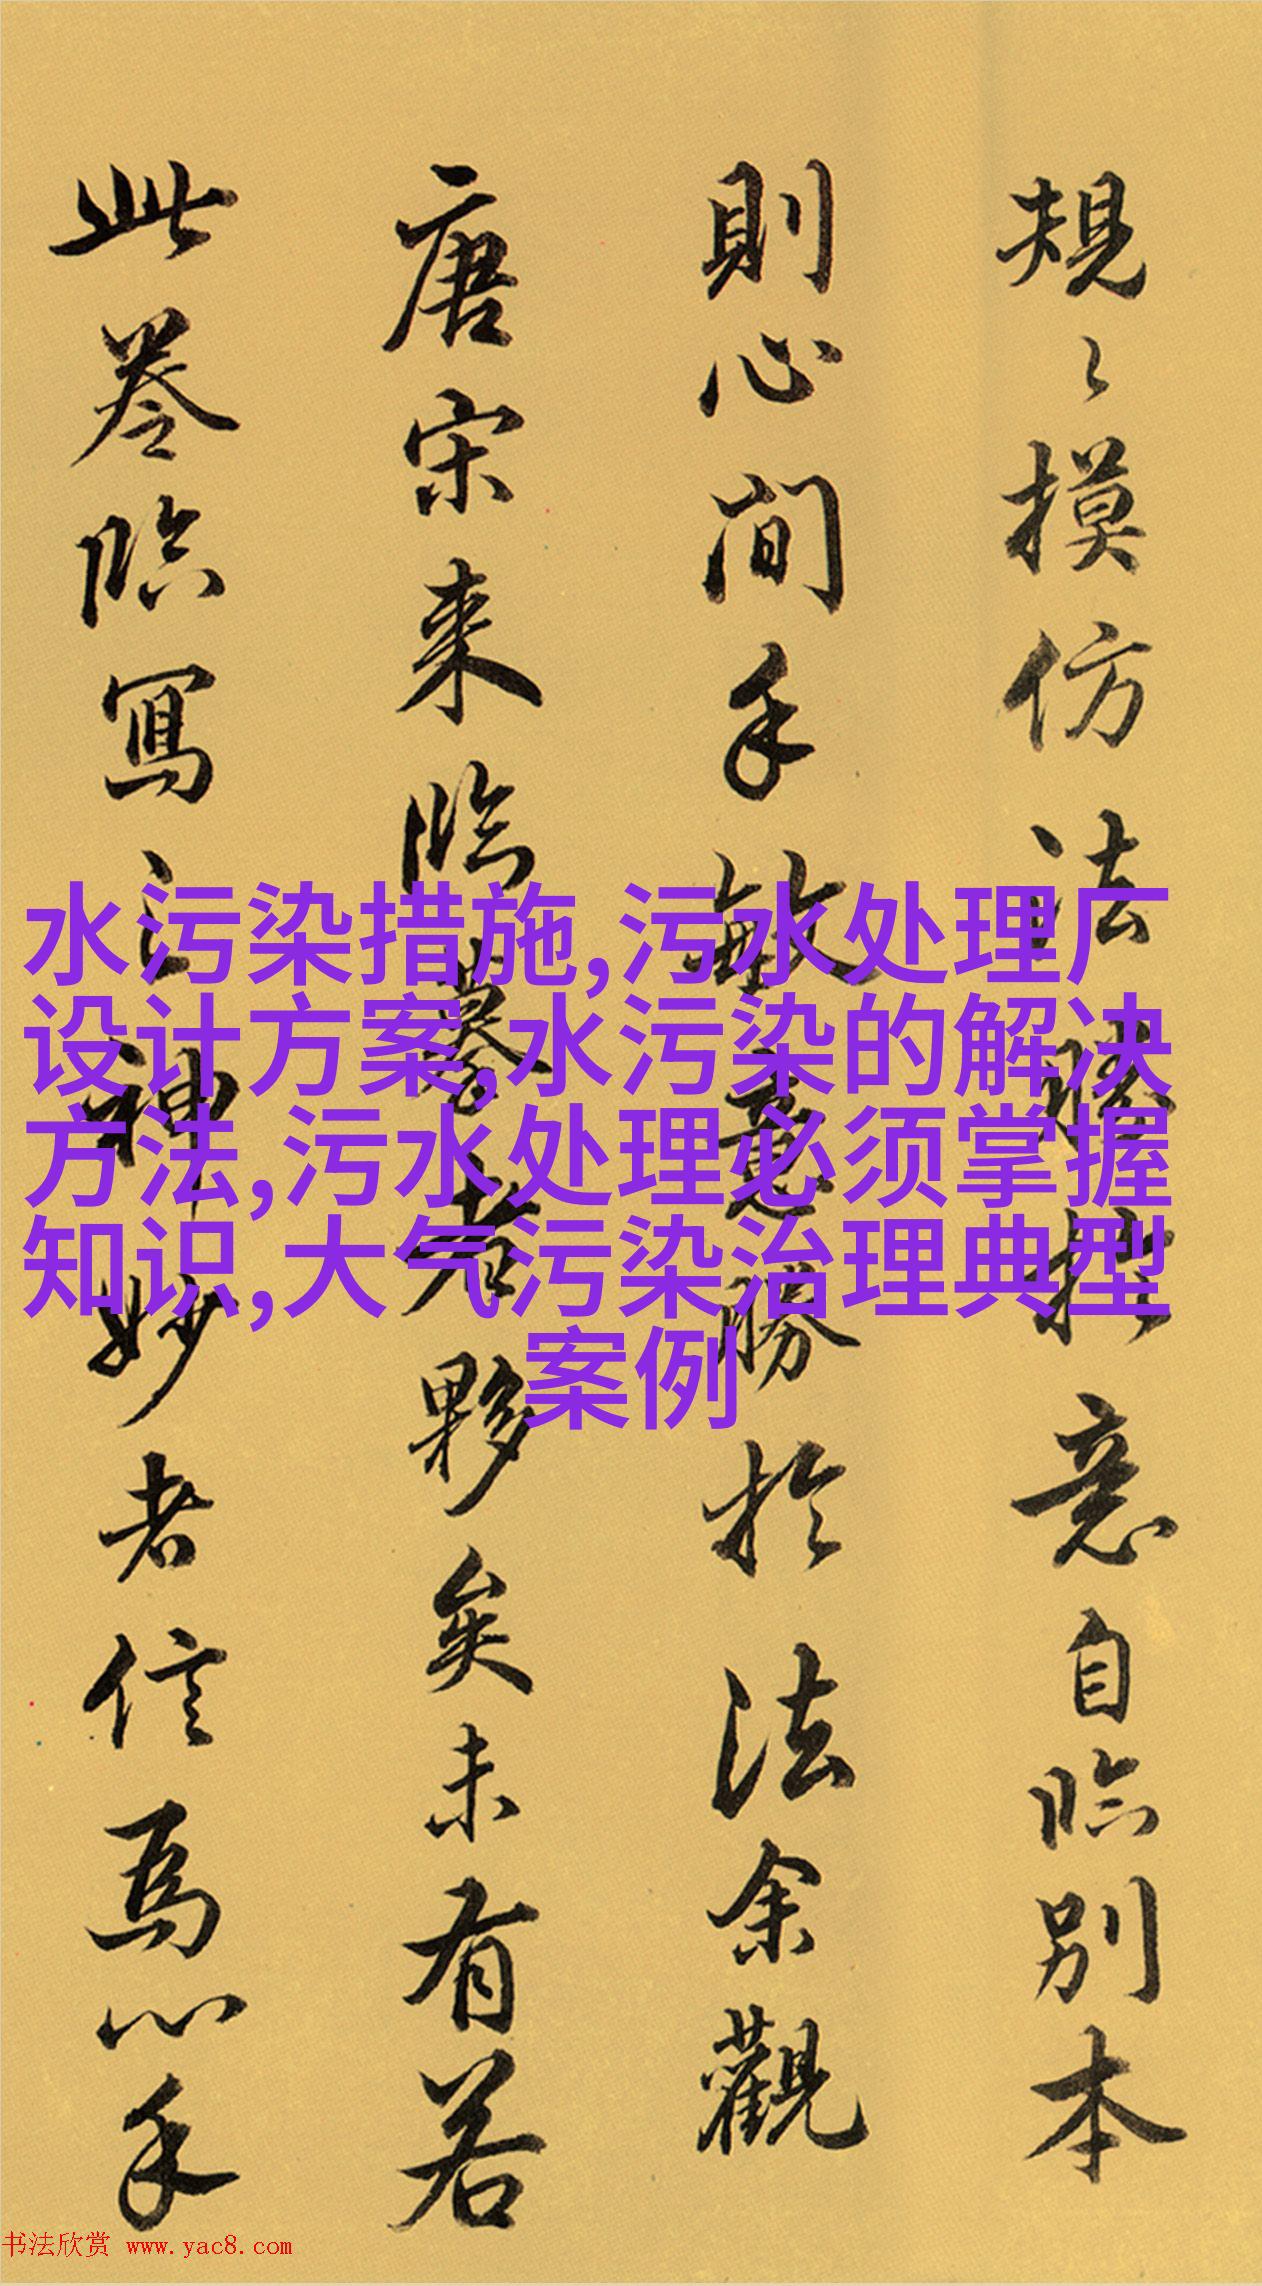 規〻摸仿法勝於意自臨別本
則心間手敏意勝於法余觀
唐宋来臨摹者夥矣未有若
此卷臨寫之神妙者信焉心手
水污染措施,污水处理厂
设计方案,水污染的解决
方法,污水处理必须掌握
知识,大气污染治理典型
案例
书法欣赏 www.yac8.com